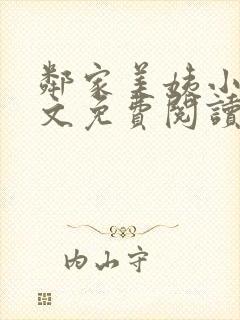 鄰家美姨小
文免費閱讀
內山守